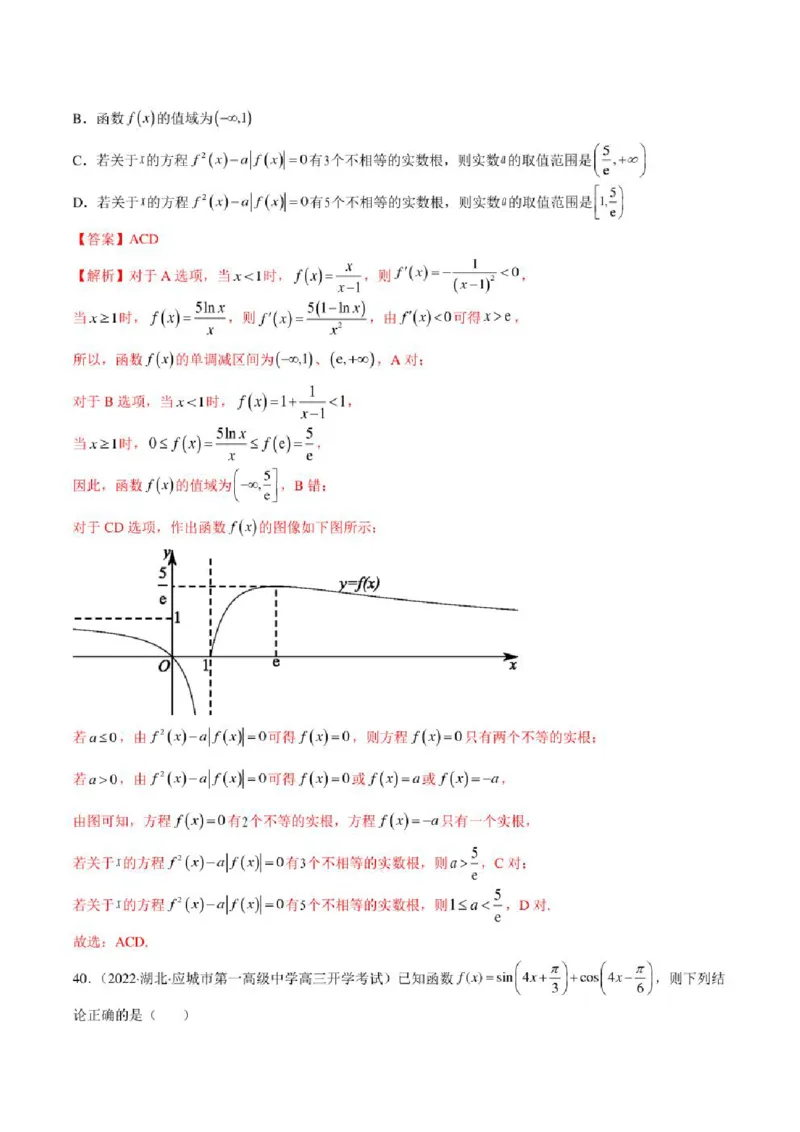 B．函数 f(x) 的值域为(−∞,1)
C．若关于 x 的方程 f²(x)−a|f(x)|=0有3个不相等的实数根，则实数 a 的取值范围是(5/e,+∞)
D．若关于 x 的方程 f²(x)−a|f(x)|=0有5个不相等的实数根，则实数 a 的取值范围是[1,5/e)
【答案】ACD
【解析】对于A选项，当 x<1时，f(x)=x/(x−1)，则 f′(x)=−1/(x−1)²<0，
当 x≥1时，f(x)=5ln x/x，则 f′(x)=5(1−ln x)/x²，由 f′(x)<0可得 x>e，
所以，函数 f(x) 的单调减区间为(−∞,1)、(e,+∞)，A对；
对于B选项，当 x<1时，f(x)=1+1/(x−1)<1，
当 x≥1时，0≤f(x)=5ln x/x≤f(e)=5/e，
因此，函数 f(x) 的值域为(−∞,5/e]，B错；
对于CD选项，作出函数 f(x) 的图像如下图所示：
y
5/e
y=f(x)
1
O 1 e x
若 a≤0，由 f²(x)−a|f(x)|=0可得 f(x)=0，则方程 f(x)=0只有两个不等的实根；
若 a>0，由 f²(x)−a|f(x)|=0可得 f(x)=0或 f(x)=a或 f(x)=−a，
由图可知，方程 f(x)=0有2个不等的实根，方程 f(x)=−a只有一个实根，
若关于 x 的方程 f²(x)−a|f(x)|=0有3个不相等的实数根，则 a>5/e，C对；
若关于 x 的方程 f²(x)−a|f(x)|=0有5个不相等的实数根，则1≤a<5/e，D对.
故选：ACD.
40．（2022·湖北·应城市第一高级中学高三开学考试）已知函数 f(x)=sin(4x+π/3)+cos(4x−π/6)，则下列结
论正确的是（　　）